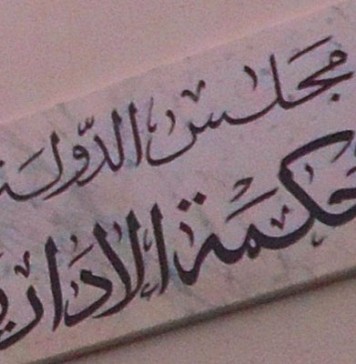 مجلس الدّولة
محكمة الادارية